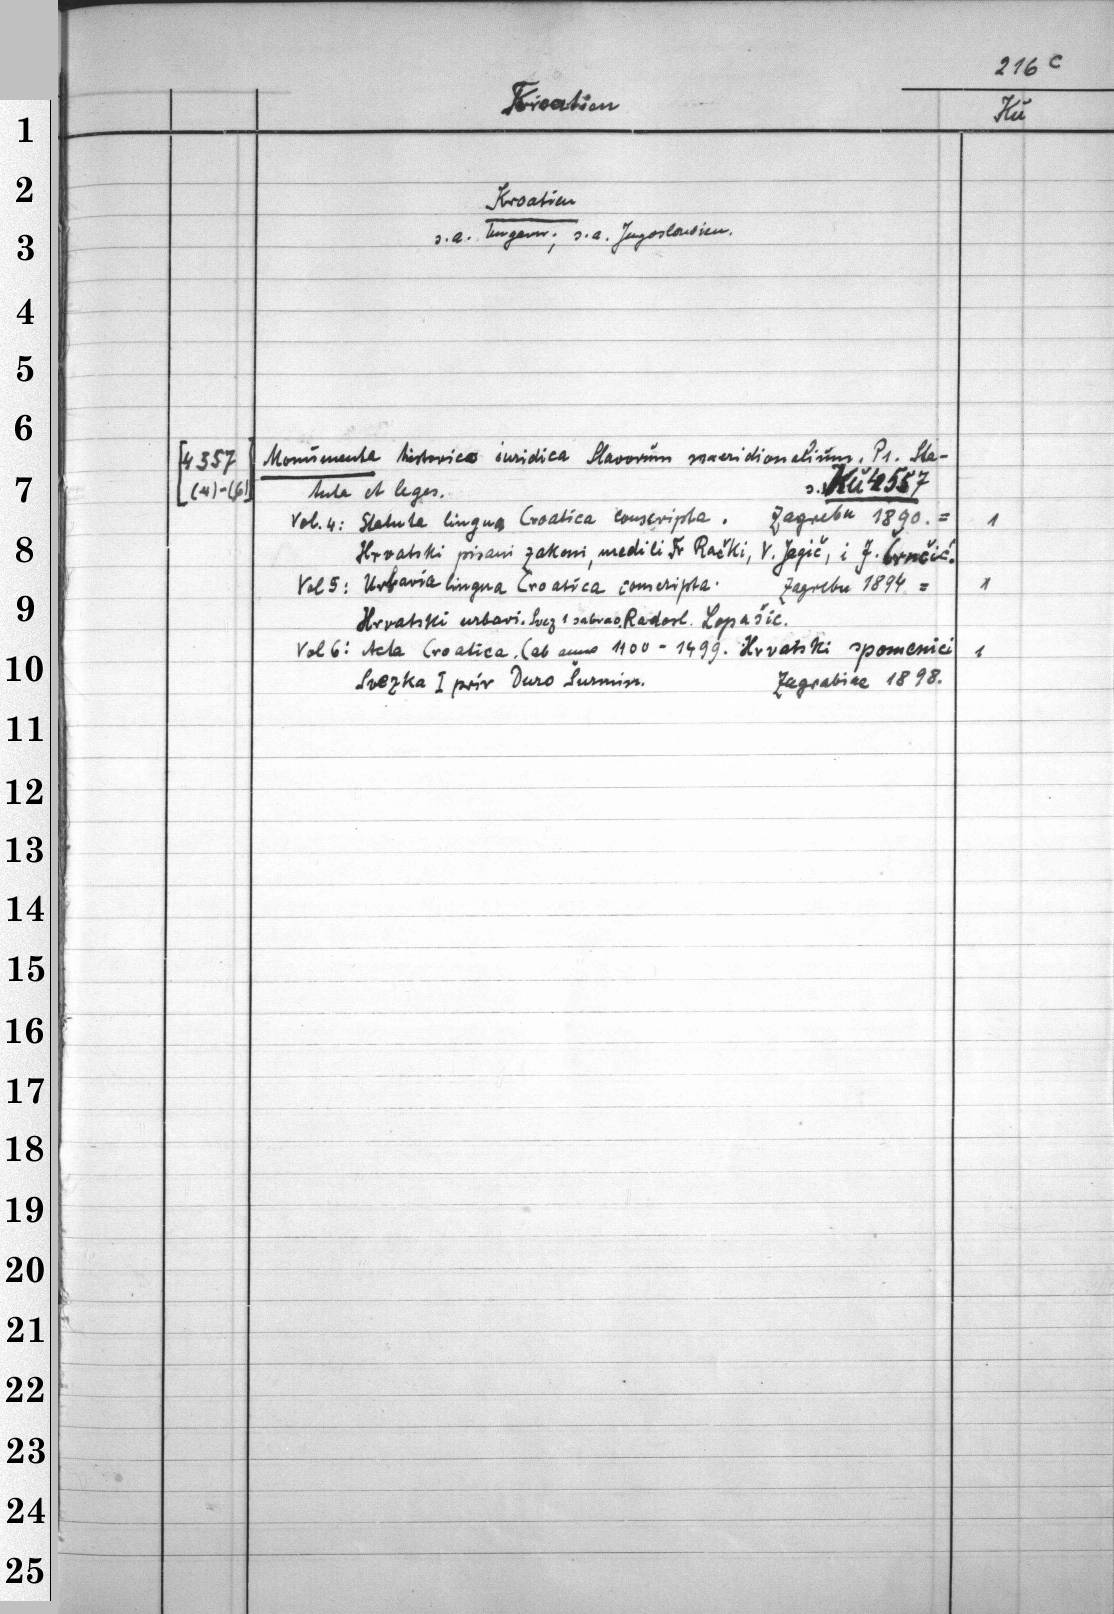 216 c
Kroatien
Kü
1
2
Kroatien
s.a. Ungarn; s.a. Jugoslavien.
3
4
5
6
[4357] Monumenta historico iuridica Slavorum meridionalium. P1. Sta-
7
[(4)-(6)] tuta et leges. s. Kü 4557
Vol. 4: Statuta lingua Croatica conscripta. Zagrebu 1890. = 1
8
Hrvatski pisani zakoni, uredili Fr Rački, V. Jagič, i J. Črnčić.
Vol 5: Urbaria lingua Croatica conscripta. Zagrebu 1894 = 1
9
Hrvatski urbari. Svez 1 sabrao Radosl. Lopašić.
Vol 6: Acta Croatica. (ab anno 1100 - 1499. Hrvatski spomenici 1
10
Svezka I prir Duro Šurmin. Zagrabiae 1898.
11
12
13
14
15
16
17
18
19
20
21
22
23
24
25